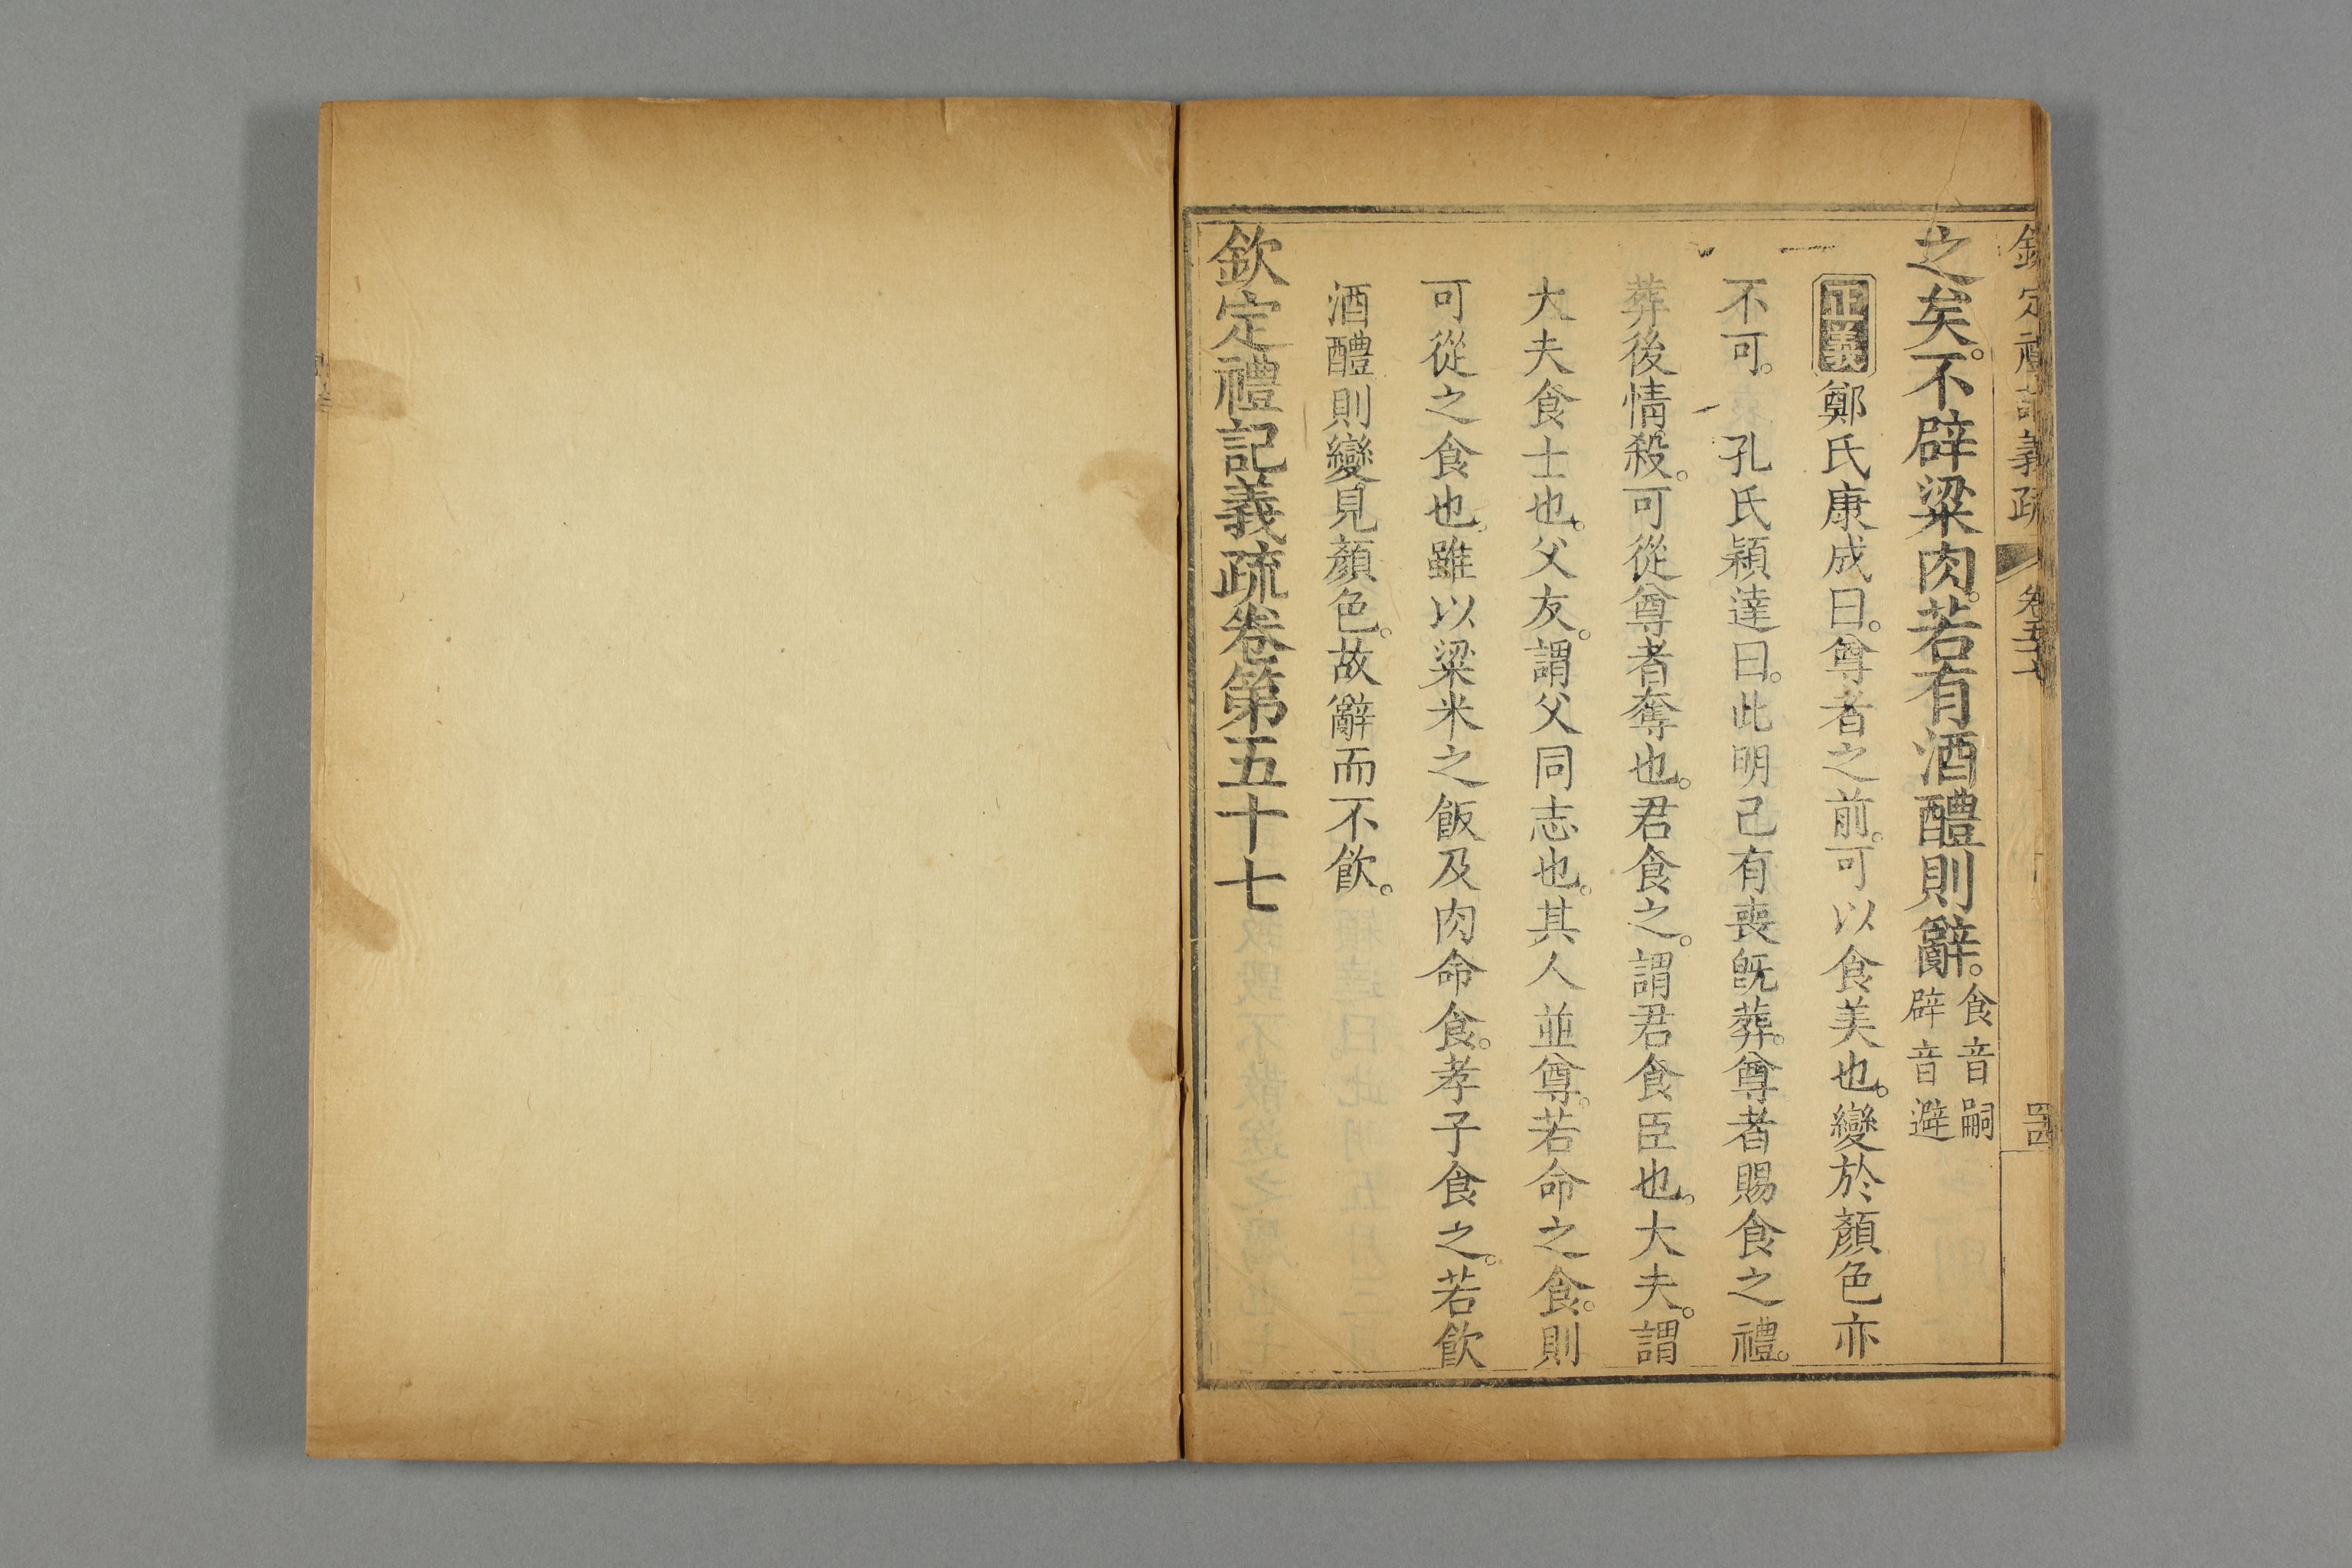 欽定禮記義疏 卷五十七 四
之矣。不辟粱肉。若有酒醴則辭。食音嗣辟音避
正義鄭氏康成曰。尊者之前。可以食美也。變於顏色亦
不可。孔氏穎達曰。此明己有喪既葬。尊者賜食之禮。
葬後情殺。可從尊者奪也。君食之。謂君食臣也。大夫。謂
大夫食士也。父友。謂父同志也。其人並尊。若命之食。則
可從之食也。雖以粱米之飯及肉命食。孝子食之。若飲
酒醴則變見顏色。故辭而不飲。
欽定禮記義疏卷第五十七